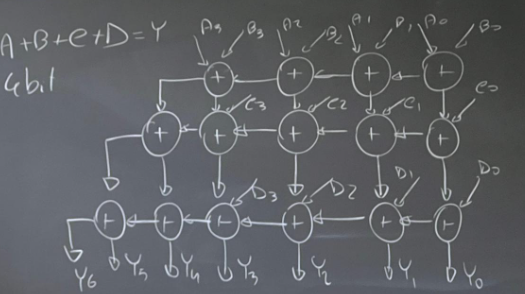 A+B+C+D=Y
4bit
A3 B3 A2 B2 A1 B1 A0 B0
+ + + +
C3 C2 C1 C0
+ + + + +
D3 D2 D1 D0
+ + + + + +
Y6 Y5 Y4 Y3 Y2 Y1 Y0